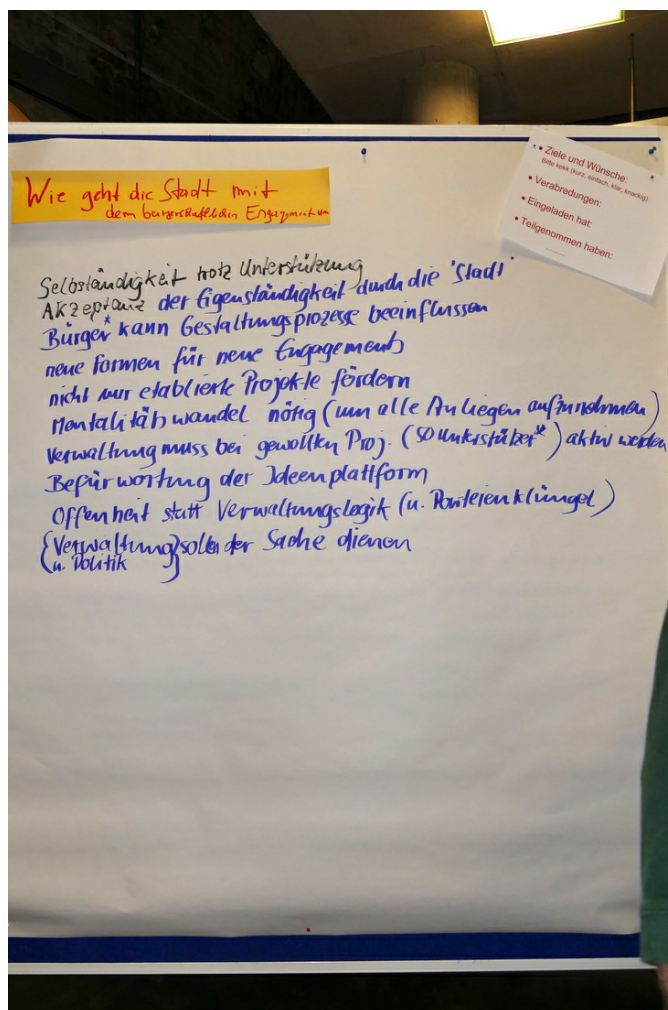 Wie geht die Stadt mit
dem bürgerschaftlichen Engagement um
• Ziele und Wünsche:
Bitte kekk (kurz, einfach, klar, knackig)
• Verabredungen:
• Eingeladen hat:
• Teilgenommen haben:
Selbständigkeit trotz Unterstützung
Akzeptanz der Eigenständigkeit durch die 'Stadt'
Bürger* kann Gestaltungsprozesse beeinflussen
neue Formen für neue Engagements
nicht nur etablierte Projekte fördern
Mentalitätswandel nötig (um alle Anliegen aufzunehmen)
Verwaltung muss bei gewollten Proj. (50 Unterstützer*) aktiv werden
Befürwortung der Ideenplattform
Offenheit statt Verwaltungslogik (u. Parteienklüngel)
{Verwaltung} sollen der Sache dienen
u. Politik